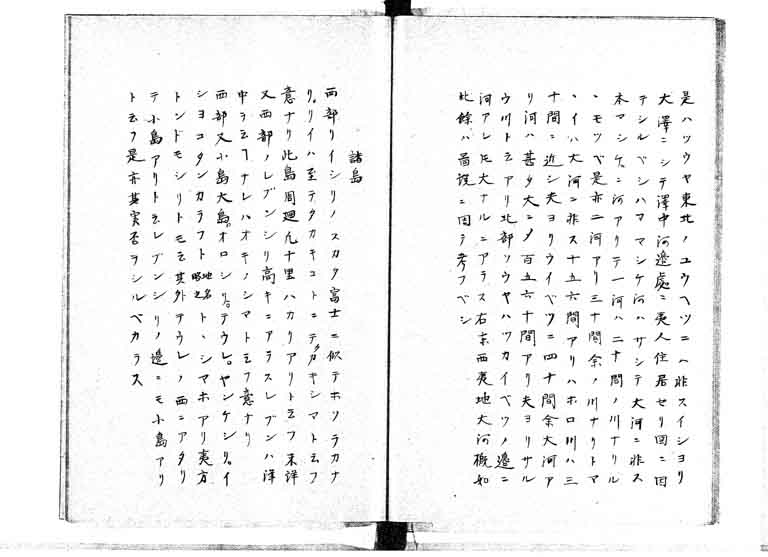 是ハツウヤ東北ノユウヘツニハ非スイシヨリ
大澤ニシテ澤中河邊處ニ夷人住居セリ図ニ因
テシルベシハママシケ河ハサシテ大河ニ非ス
本マシケニ河アリテ一河ハ二十間ノ川ナリル
、モツベ是亦二河アリ三十間余ノ川ナリトマ
、イハ大河ニ非ス十五六間アリハホロ川ハ三
十間ニ近シ夫ヨリウイベツニ四十間余大河ア
リ河ハ甚タ大ニ〆百五六十間アリ夫ヨリサル
ウ川トモアリ北部ソウヤハツカイベツノ邊ニ
河アレ𪜈大ナルニアラス右東西夷地大河概如
此餘ハ圖説ニ因テ考フベシ
諸島
西部リイシリノスカタ富士ニ似テホソラカナ
リ。リイハ至テタカキコトニテタカキシマト云フ
意ナリ此島周廻凡十里ハカリアリト云フ未詳
又西部ノレブンシリ高キニアラスレブンハ洋
中ヲ云フナレハオキノシマト云フ意ナリ
西部又小島大島。オロシリ。テウレ。ヤンケシリ。イ
シヨコタンカラフト地名略之ト、シマホアリ夷方
トンドモシリトモ云其外テウレノ西ニアタリ
テ小島アリト云レブンシリノ邊ニモ小島アリ
ト云フ是亦其実否ヲシルベカラス